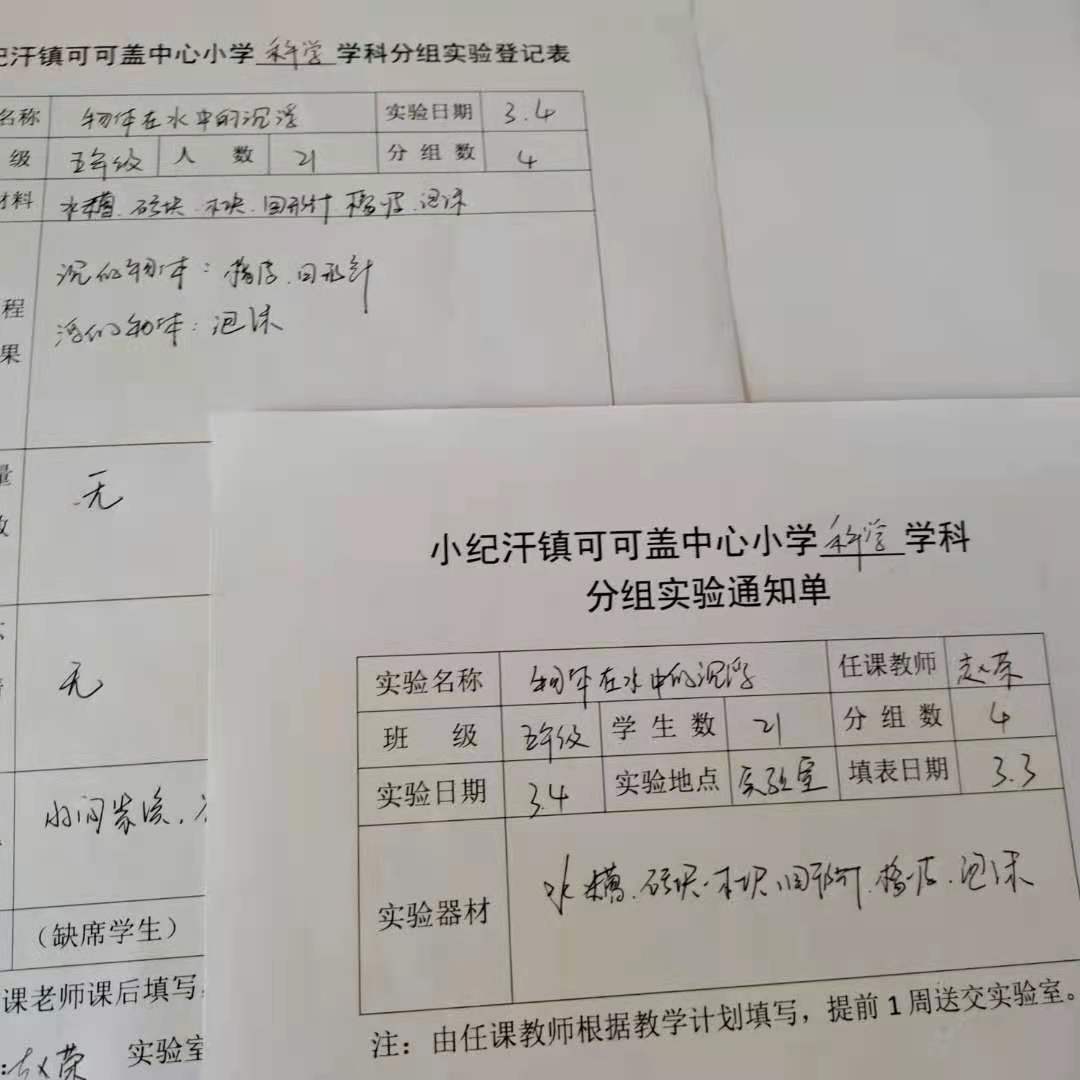 纪汗镇可可盖中心小学 科学 学科分组实验登记表
名称 物体在水中的沉浮 实验日期 3.4
级 五年级 人 数 21 分组数 4
材料 水槽、砖块、木块、回形针、橡皮、泡沫
沉的物体：橡皮、回形针
程 浮的物体：泡沫
果
量 无
无
(缺席学生)
课老师课后填写，
:赵荣 实验室
小纪汗镇可可盖中心小学 科学 学科
分组实验通知单
实验名称 物体在水中的沉浮 任课教师 赵荣
班 级 五年级 学生数 21 分组数 4
实验日期 3.4 实验地点 实验室 填表日期 3.3
实验器材 水槽、砖块、木块、回形针、橡皮、泡沫
注：由任课教师根据教学计划填写，提前1周送交实验室。